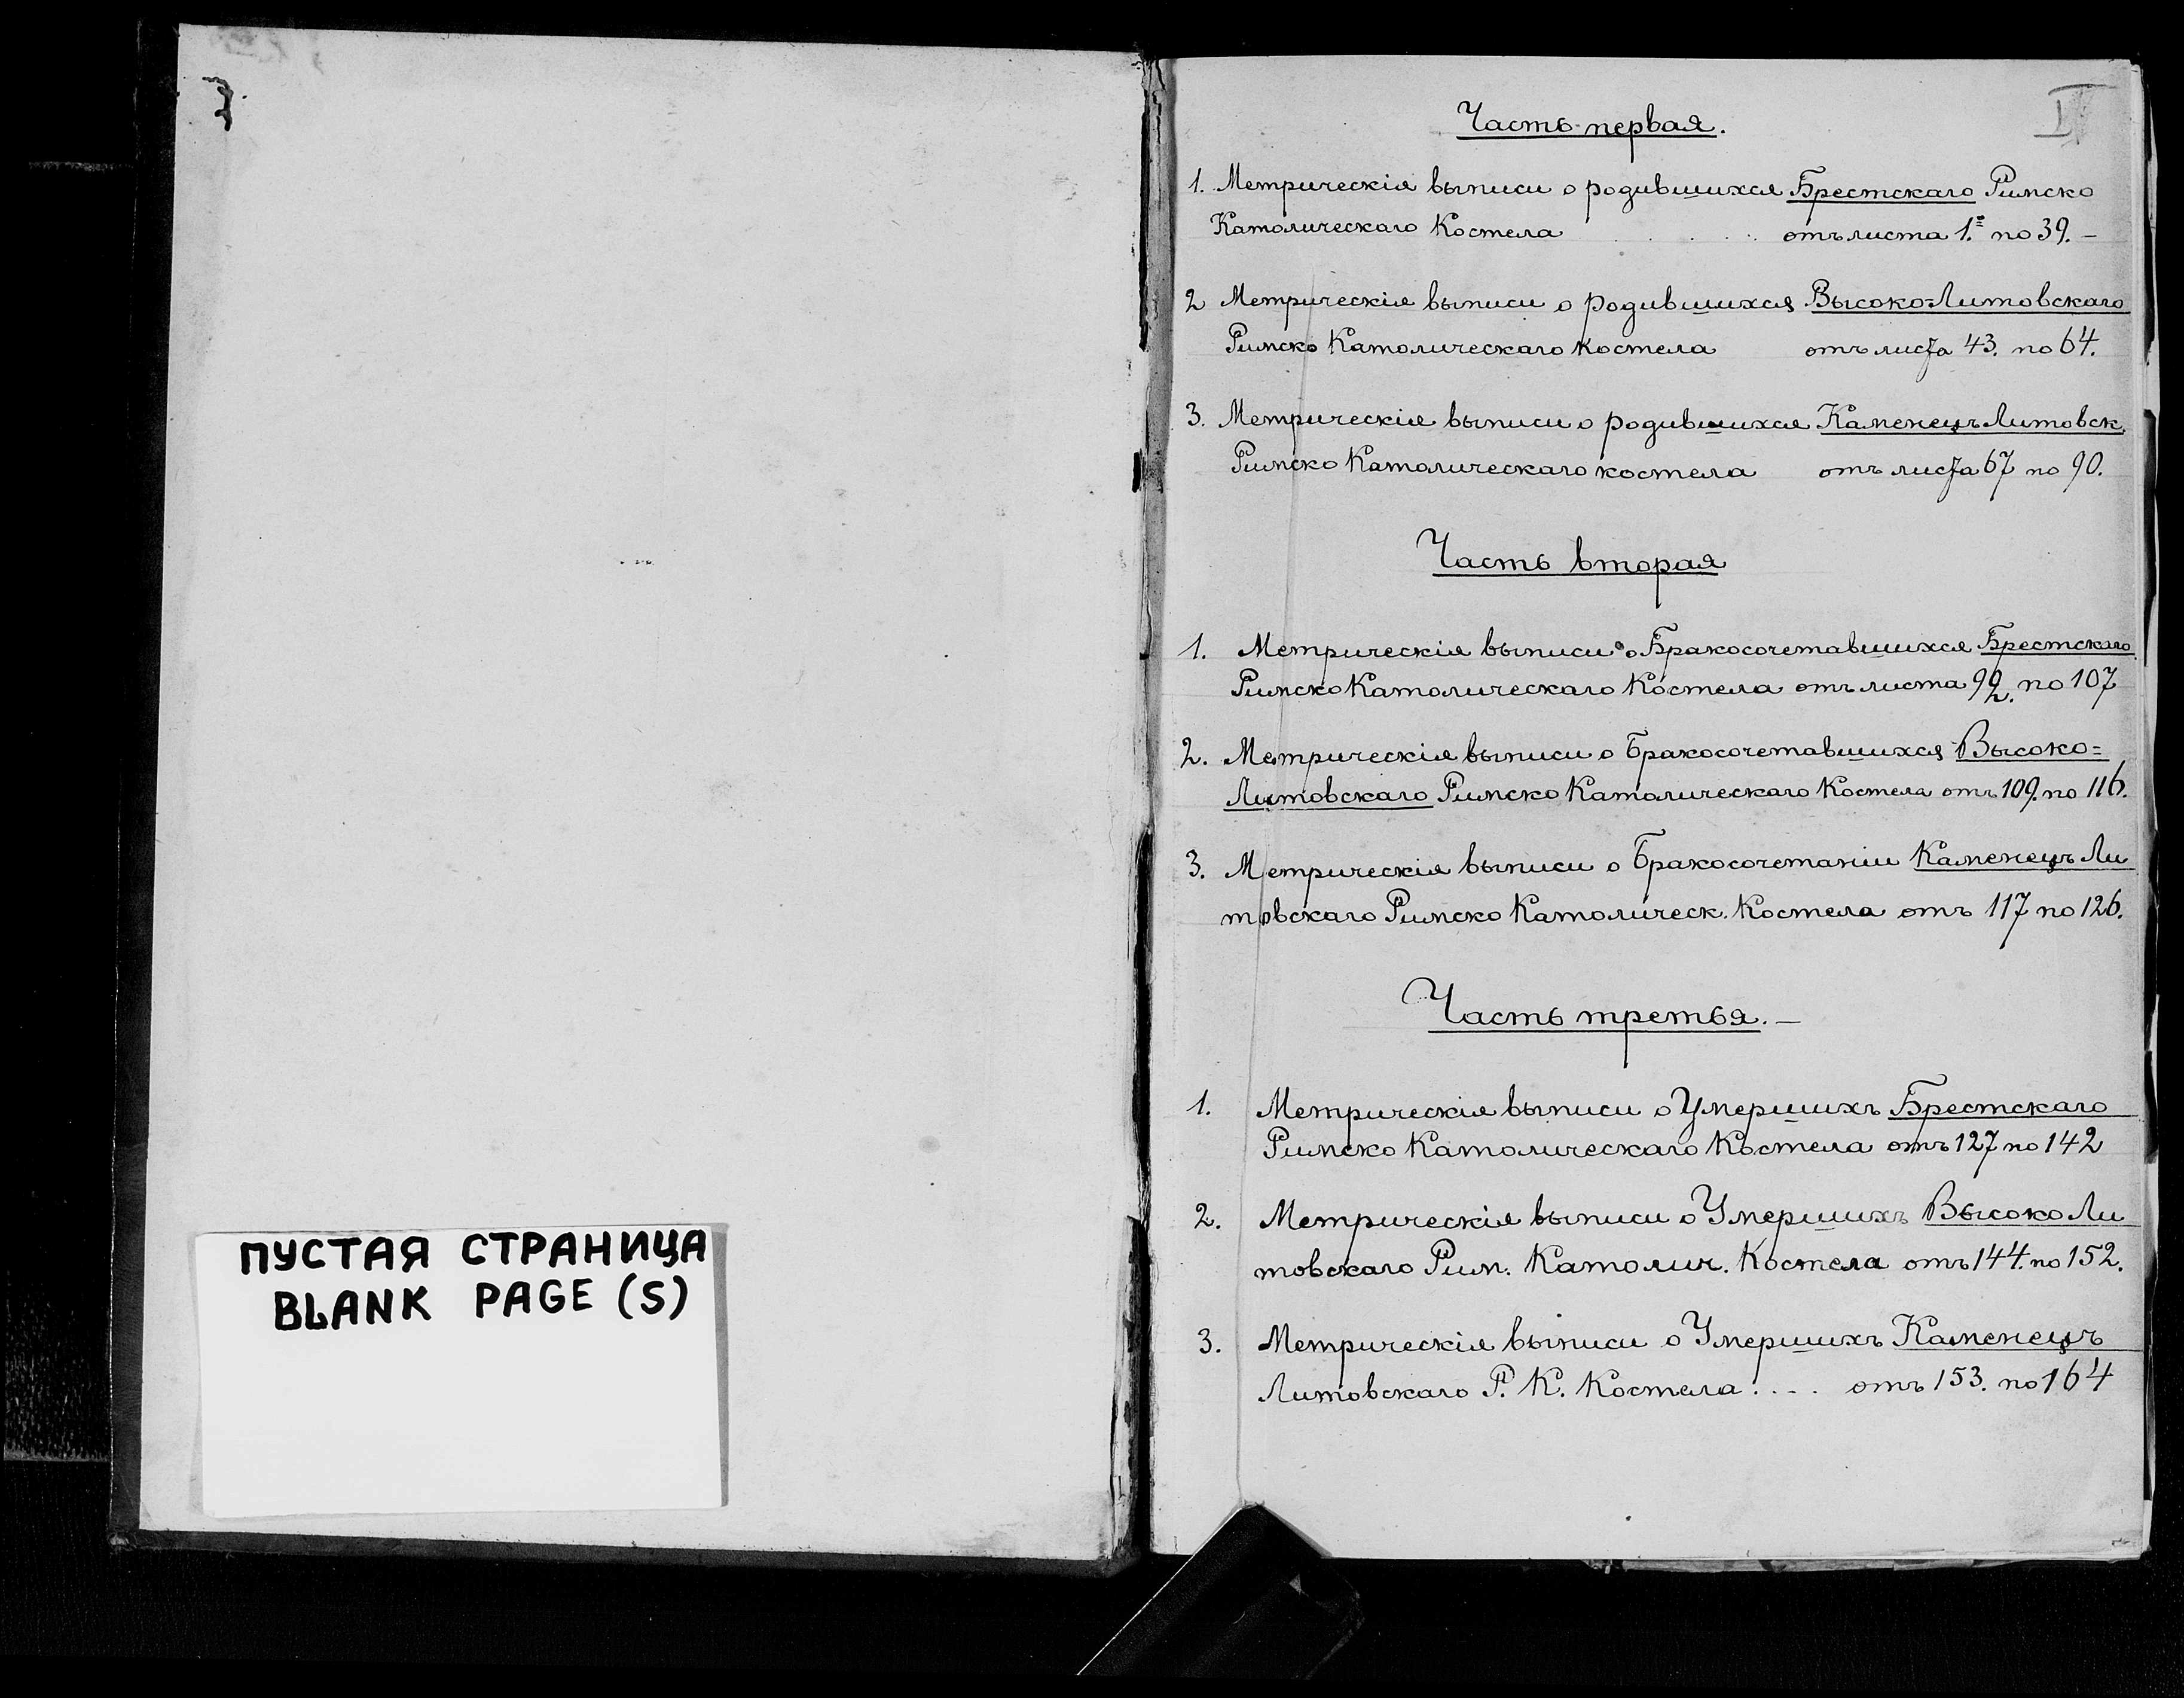 ПУСТАЯ СТРАНИЦА
BLANK PAGE (S)
I
Часть первая.
1. Метрическія выписи о родившихся Брестскаго Римско
Католическаго Костела . . . . отъ листа 1. по 39. –
2 Метрическія выписи о родившихся ВысокоЛитовскаго
Римско Католическаго костела отъ листа 43. по 64.
3. Метрическія выписи о родившихся Каменецъ Литовск.
Римско Католическаго костела отъ листа 67 по 90.
Часть вторая
1. Метрическія выписи о Бракосочетавшихся Брестскаго
Римско Католическаго Костела отъ листа 92. по 107
2. Метрическія выписи о Бракосочетавшихся Высоко=
Литовскаго Римско Католическаго Костела отъ 109. по 116.
3. Метрическія выписи о Бракосочетаніи Каменецъ Ли
товскаго Римско Католическ. Костела отъ 117 по 126.
Часть третья. –
1. Метрическія выписи о Умершихъ Брестскаго
Римско Католическаго Костела отъ 127 по 142
2. Метрическія выписи о Умершихъ Высоко Ли
товскаго Рим. Католич. Костела отъ 144. по 152.
3. Метрическія выписи о Умершихъ Каменецъ
Литовскаго Р. К. Костела . . . . отъ 153. по 164